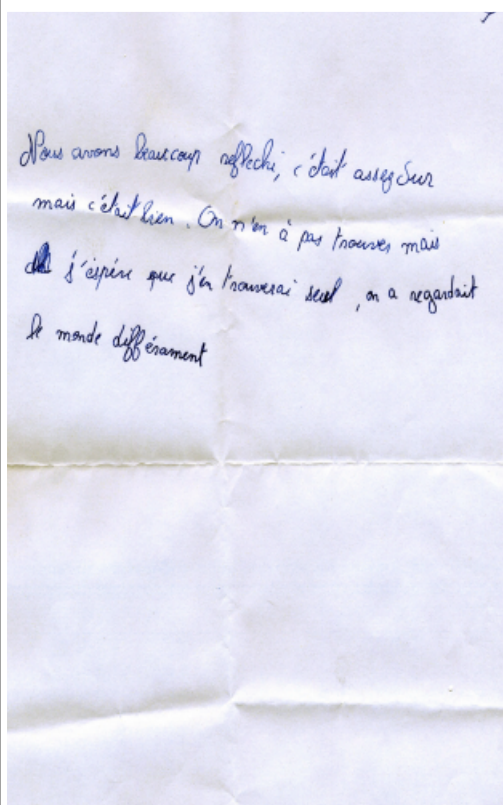 Nous avons beaucoup réflechi, c'était assez dur
mais c'était bien. On n'en à pas trouves mais
j'éspére que j'en trouverai seul, on a regardait
le monde différament